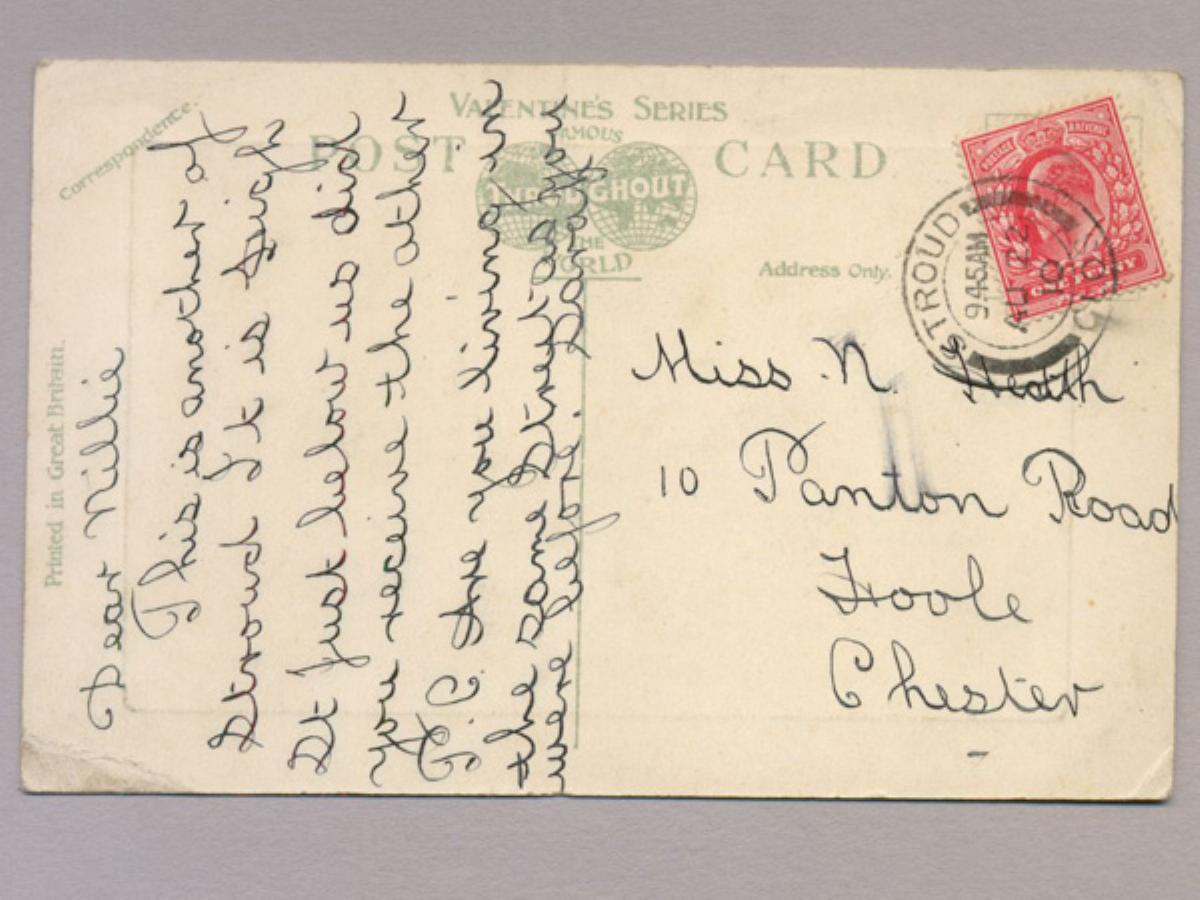 Correspondence.
VALENTINE'S SERIES
FAMOUS
THROUGHOUT
THE
WORLD
POST CARD
Address Only.
Printed in Great Britain.
POSTAGE REVENUE
ONE PENNY
STROUD
9.45AM
AU 22
10
GLOS
Dear Nillie
This is another of
Stroud It is High
St just below us did
you receive the other
P.C. Are you living in
the same Street as you
were before. Sarah
Miss N. Heath
10 Panton Road
Hoole
Chester